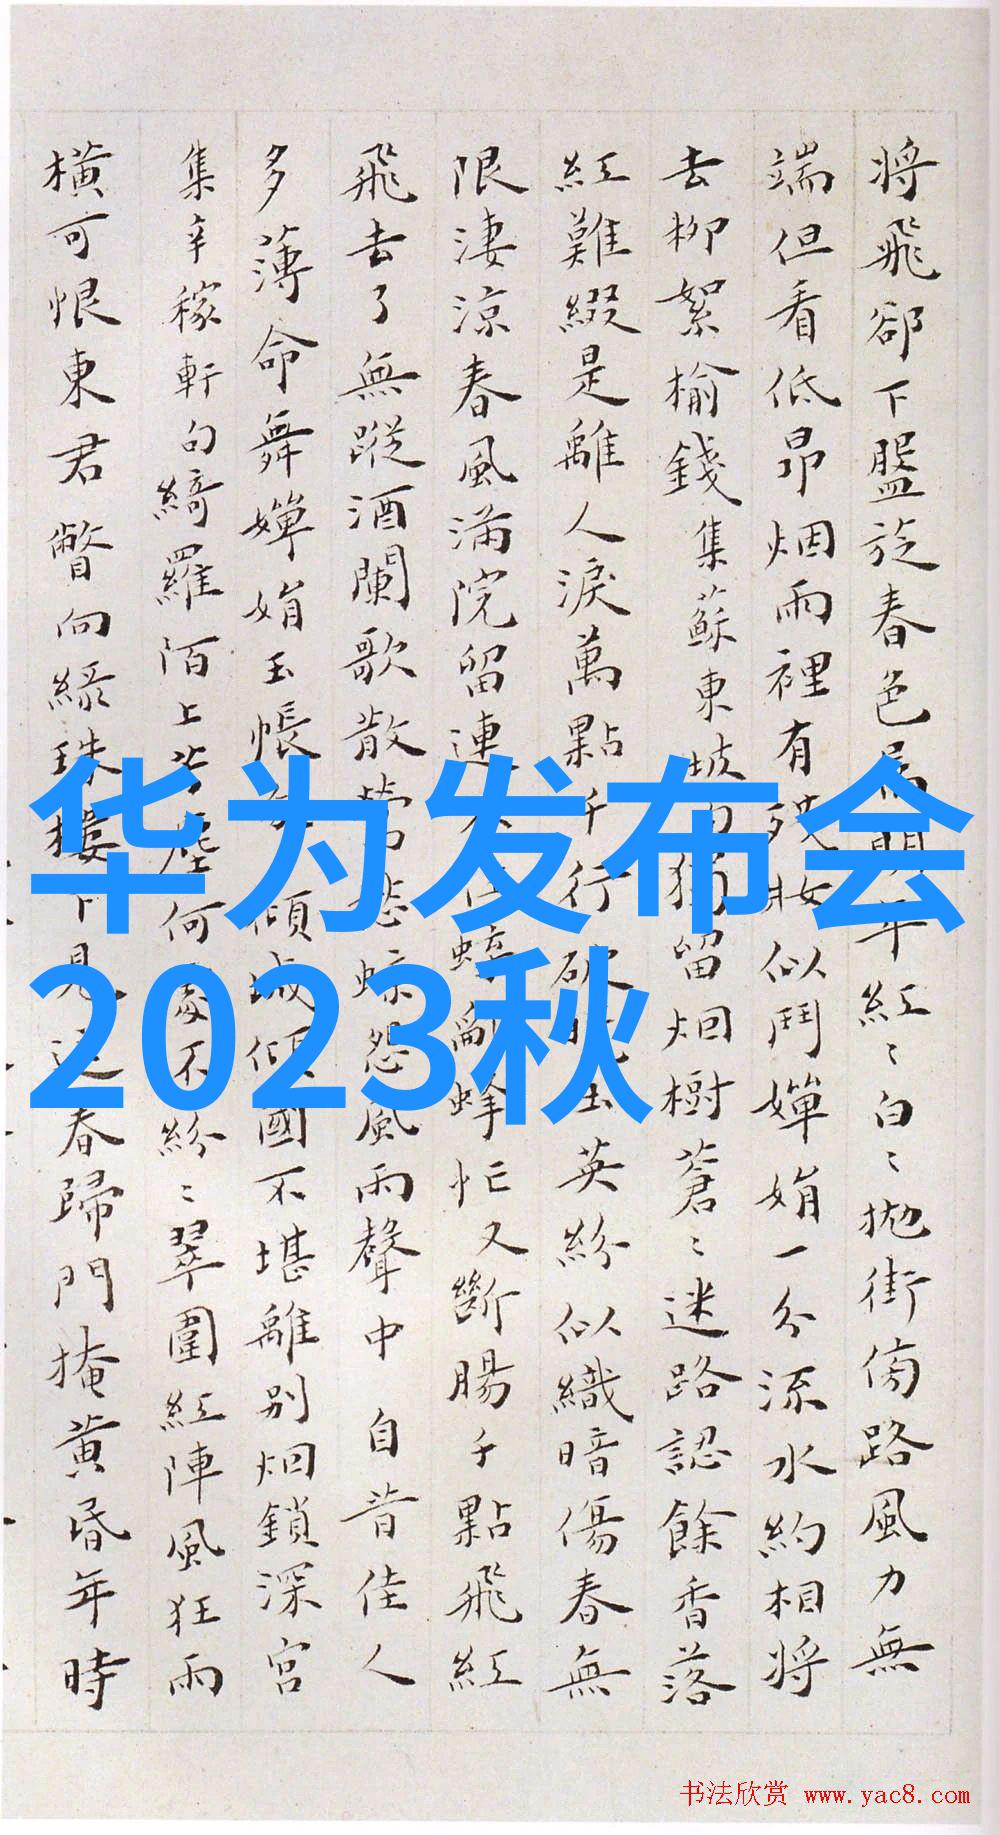 将飛卻下盤旋春色屬明年紅〻白〻拋街傍路風力無
端但看低昂烟雨裡有殘妝似鬥嬋娟一分流水約相將
去柳絮榆錢集蘇東坡句獨留烟樹蒼〻迷路認餘香落
紅難綴是離人淚萬點千行玉英紛似織暗傷春無
限淒涼春風滿院留連蜂忙又斷腸千點飛紅
飛去了無蹤酒闌歌散鶯愁蝶怨風雨聲中 自昔佳人
多薄命舞嬋娟玉帳傾城傾國不堪離別烟鎖深宮
集辛稼軒句綺羅陌上芳塵何不紛〻翠圍紅陣風狂雨
橫可恨東君瞥向綠珠樓下見送春歸門掩黃昏年時
华为发布会
2023秋
书法欣赏 www.yac8.com